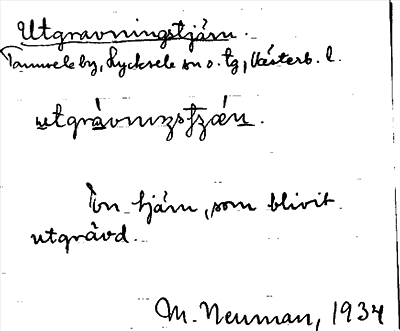 Utgravningstjärn.
Tannsele by, Lycksele sn o. tg, Västerb. l.
utgrávnɪŋstjæ̀n.
En tjärn, som blivit
utgrävd.
M. Neuman, 1934